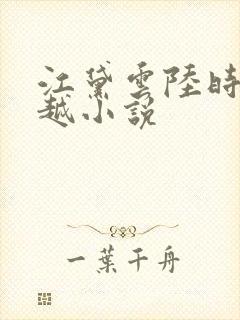 江黛雲陸時
越小說
一葉千舟